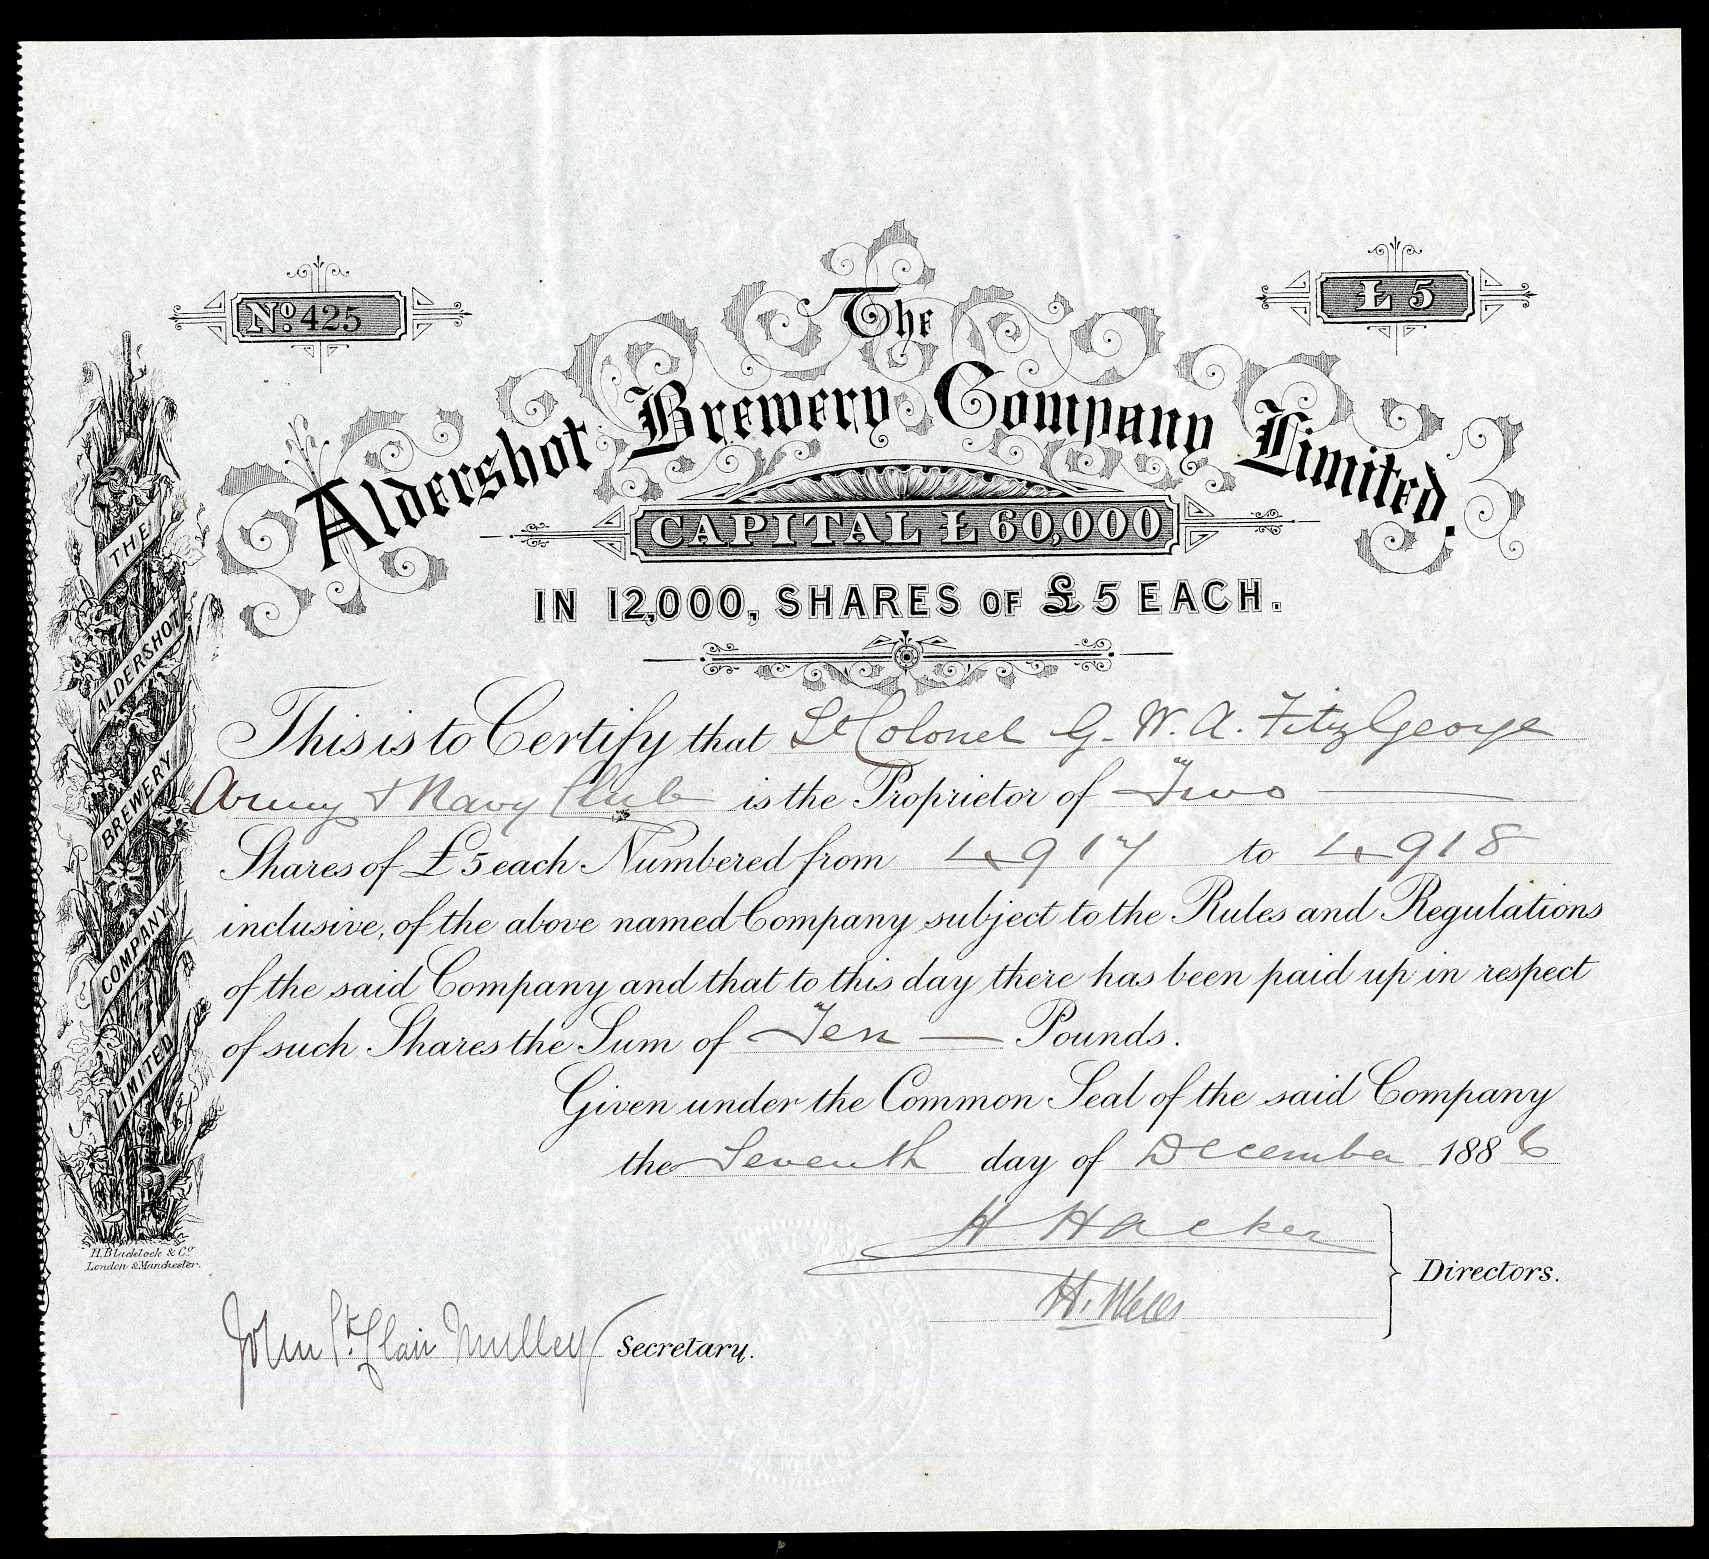 No. 425
£ 5
The
Aldershot Brewery Company Limited.
CAPITAL £ 60,000
IN 12,000, SHARES OF £5 EACH.
THE
ALDERSHOT
BREWERY
COMPANY
LIMITED
This is to Certify that Lt Colonel G. W. A. FitzGeorge
Army & Navy Club is the Proprietor of Two
Shares of £5 each Numbered from 4917 to 4918
inclusive, of the above named Company subject to the Rules and Regulations
of the said Company and that to this day there has been paid up in respect
of such Shares the Sum of Ten Pounds.
Given under the Common Seal of the said Company
the Seventh day of December 1886
H. Blacklock & Co.
London & Manchester.
H Hacker
H. Wells
Directors.
John St. Clair Mulley Secretary.